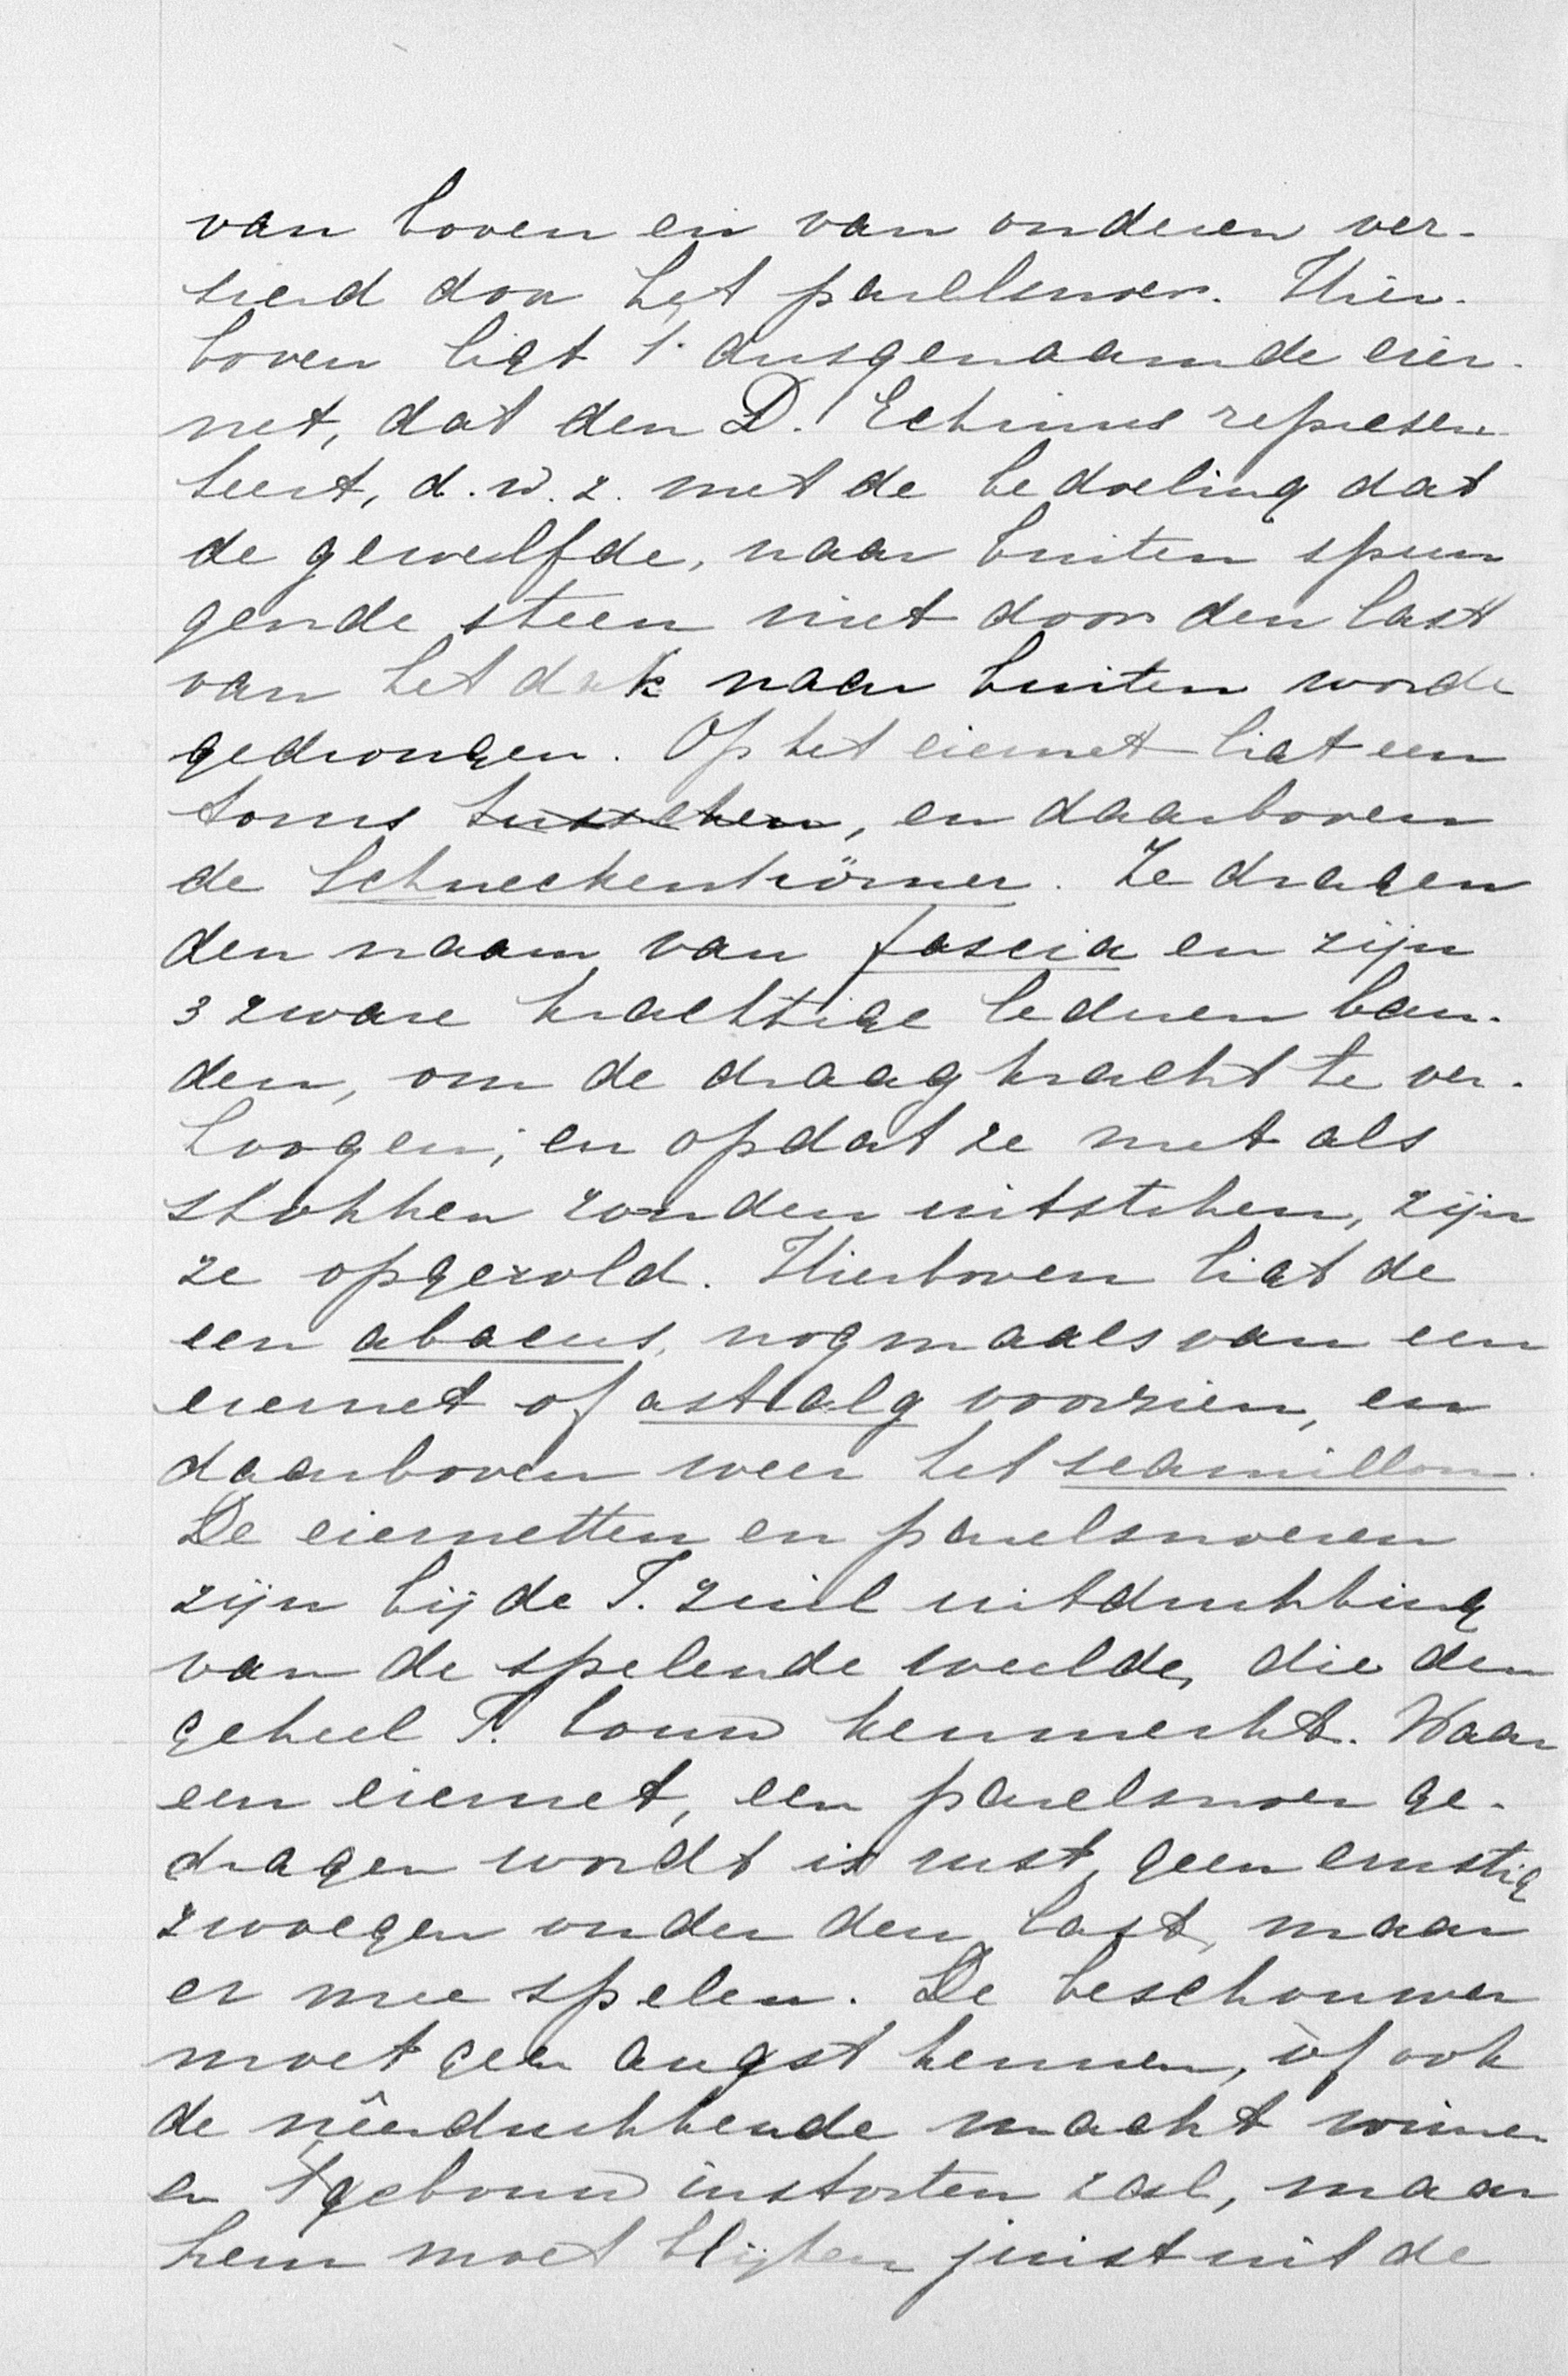 van boven en van onderen ver-
sierd door het parelsnoer. Hier-
boven ligt 't dusgenaamde eier-
net, dat den D. Echinus represen-
teert, d.w.z. met de bedoeling dat
de gewelfde, naar buiten sprin
gende steen niet door den last
van het dak naar buiten worde
gedrongen. Op het eiernet ligt een
torus tusschen, en daarboven
de Schneckenhörner. Ze dragen
den naam van fascia en zijn
3 zware krachtige lederen ban-
den, om de draagkracht te ver-
hoogen; en opdat ze niet als
stokken zouden uitsteken, zijn
ze opgerold. Hierboven ligt de
een abacus, nogmaals van een
eiernet of astralg voorzien, en
daarboven weer het scamillon.
De eiernetten en parelsnoeren
zijn bij de I. zuil uitdrukking
van de spelende weelde, die den
geheel I. bouw kenmerkt. Waar
een eiernet, een parelsnoer ge-
dragen wordt is rust, geen ernstig
zwoegen onder den last, maar
er mee spelen. De beschouwer
moet geen angst kennen, òf ook
de nêerdrukkende macht winnen
en 't gebouw instorten zal, maar
hem moet blijken juist uit de